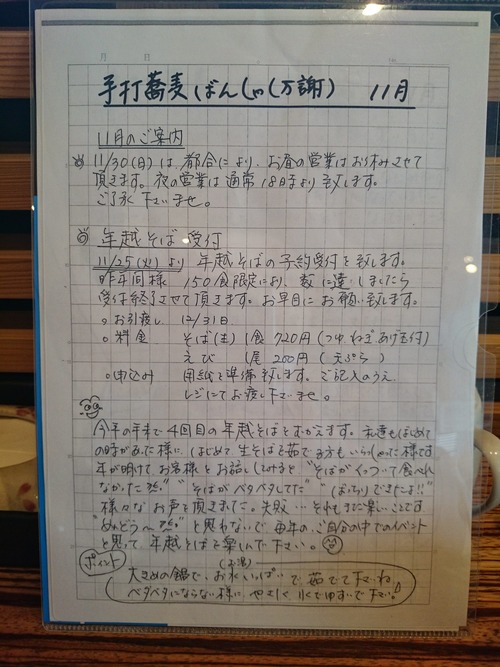 月 日
手打蕎麦 ばんしゃ(万謝) 11月
11月のご案内
11/30(日)は、都合により、お昼の営業はお休みさせて
頂きます。夜の営業は通常18時より致します。
ご了承下さいませ。
年越そば受付
11/25(火)より 年越そばの予約受付を致します。
昨年同様 150食限定により、数に達しましたら
受付終了させて頂きます。お早目にお願い致します。
。お引渡し 12/31日
。料金 そば(生) 1食 720円(つゆ、ねぎ、あげ玉付)
えび 1尾 200円(天ぷら)
。申込み 用紙を準備致します。ご記入のうえ、
レジにてお渡し下さいませ。
今年の年末で4回目の年越そばをむかえます。私達もはじめて
の時があった様に、はじめて生そばを茹でる方もいらしゃった様です
年が明けてお客様とお話ししてみると"そばがくっついて食べれ
なかった" "そばがベタベタしてた" "ばっちりできたよ!!"
様々なお声を頂きました。失敗…それもまた楽しいことです
"めんどう〜" と思わないで 毎年の、ご自分の中でのイベント
と思って、年越そばを楽しんで下さい。
ポイント
(お湯)
大きめの鍋で、お水いっぱいで 茹でて下さいね
ベタベタにならない様に やさしく 水でゆすいで下さい!